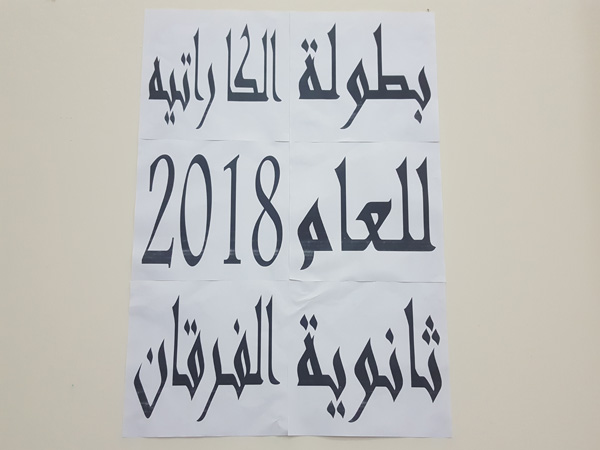 بطولة الكاراتيه
للعام 2018
ثانوية الفرقان